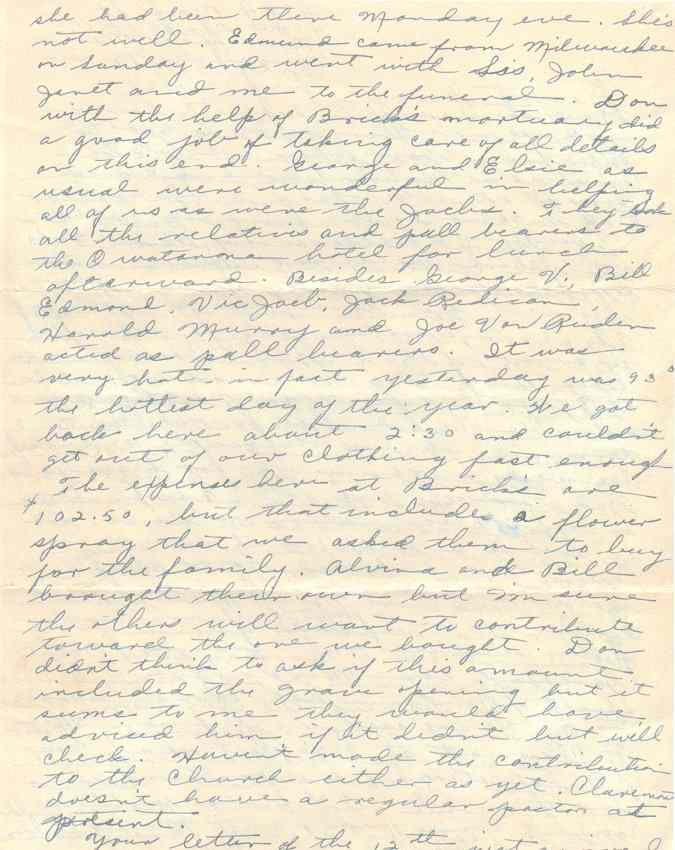 she had been there Monday eve. She's
not well. Edmund came from Milwaukee
on Sunday and went with Sis, John
Janet and me to the funeral. Don
with the help of Brick's mortuary did
a good job of taking care of all details
on this end. George and Elsie as
usual were wonderful in helping
all of us as were the Jacbs. They took
all the relatives and pall bearers to
the Owatonna hotel for lunch
afterward. Besides George V., Bill
Edmond, Vic Jacb, Jack Redican,
Harold Murry and Joe Von Ruden
acted as pall bearers. It was
very hot - in fact yesterday was 93°
the hottest day of the year. We got
back here about 2:30 and couldn't
get out of our clothing fast enough
The expenses here at Brick's are
$102.50, but that includes a flower
spray that we asked them to buy
for the family. Alvina and Bill
brought their own but I'm sure
the others will want to contribute
toward the one we bought. Don
didn't think to ask if this amount
included the grave opening but it
seems to me they would have
advised him if it didn't but will
check. Haven't made the contribution
to the Church either as yet. Claremont
doesn't have a regular pastor at
present.
Your letter of the 12th